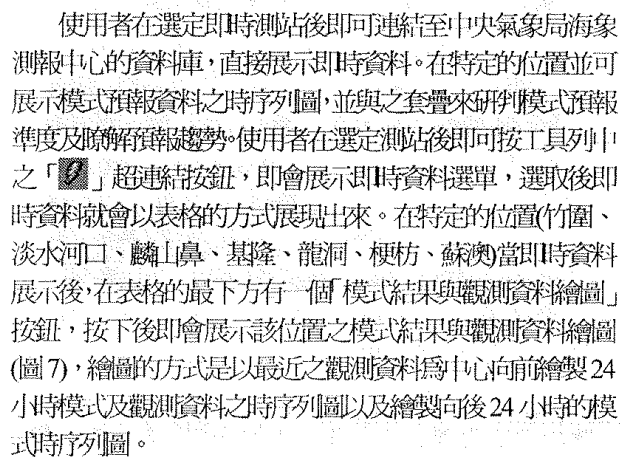 使用者在選定即時測站後即可連結至中央氣象局海象
測報中心的資料庫，直接展示即時資料。在特定的位置並可
展示模式預報資料之時序列圖，並與之套疊來研判模式預報
準度及瞭解預報趨勢。使用者在選定測站後即可按工具列中
之「」超連結按鈕，即會展示即時資料選單，選取後即
時資料就會以表格的方式展現出來。在特定的位置(竹圍、
淡水河口、麟山鼻、基隆、龍洞、梗枋、蘇澳)當即時資料
展示後，在表格的最下方有一個「模式結果與觀測資料繪圖」
按鈕，按下後即會展示該位置之模式結果與觀測資料繪圖
(圖 7)，繪圖的方式是以最近之觀測資料為中心向前繪製 24
小時模式及觀測資料之時序列圖以及繪製向後 24 小時的模
式時序列圖。